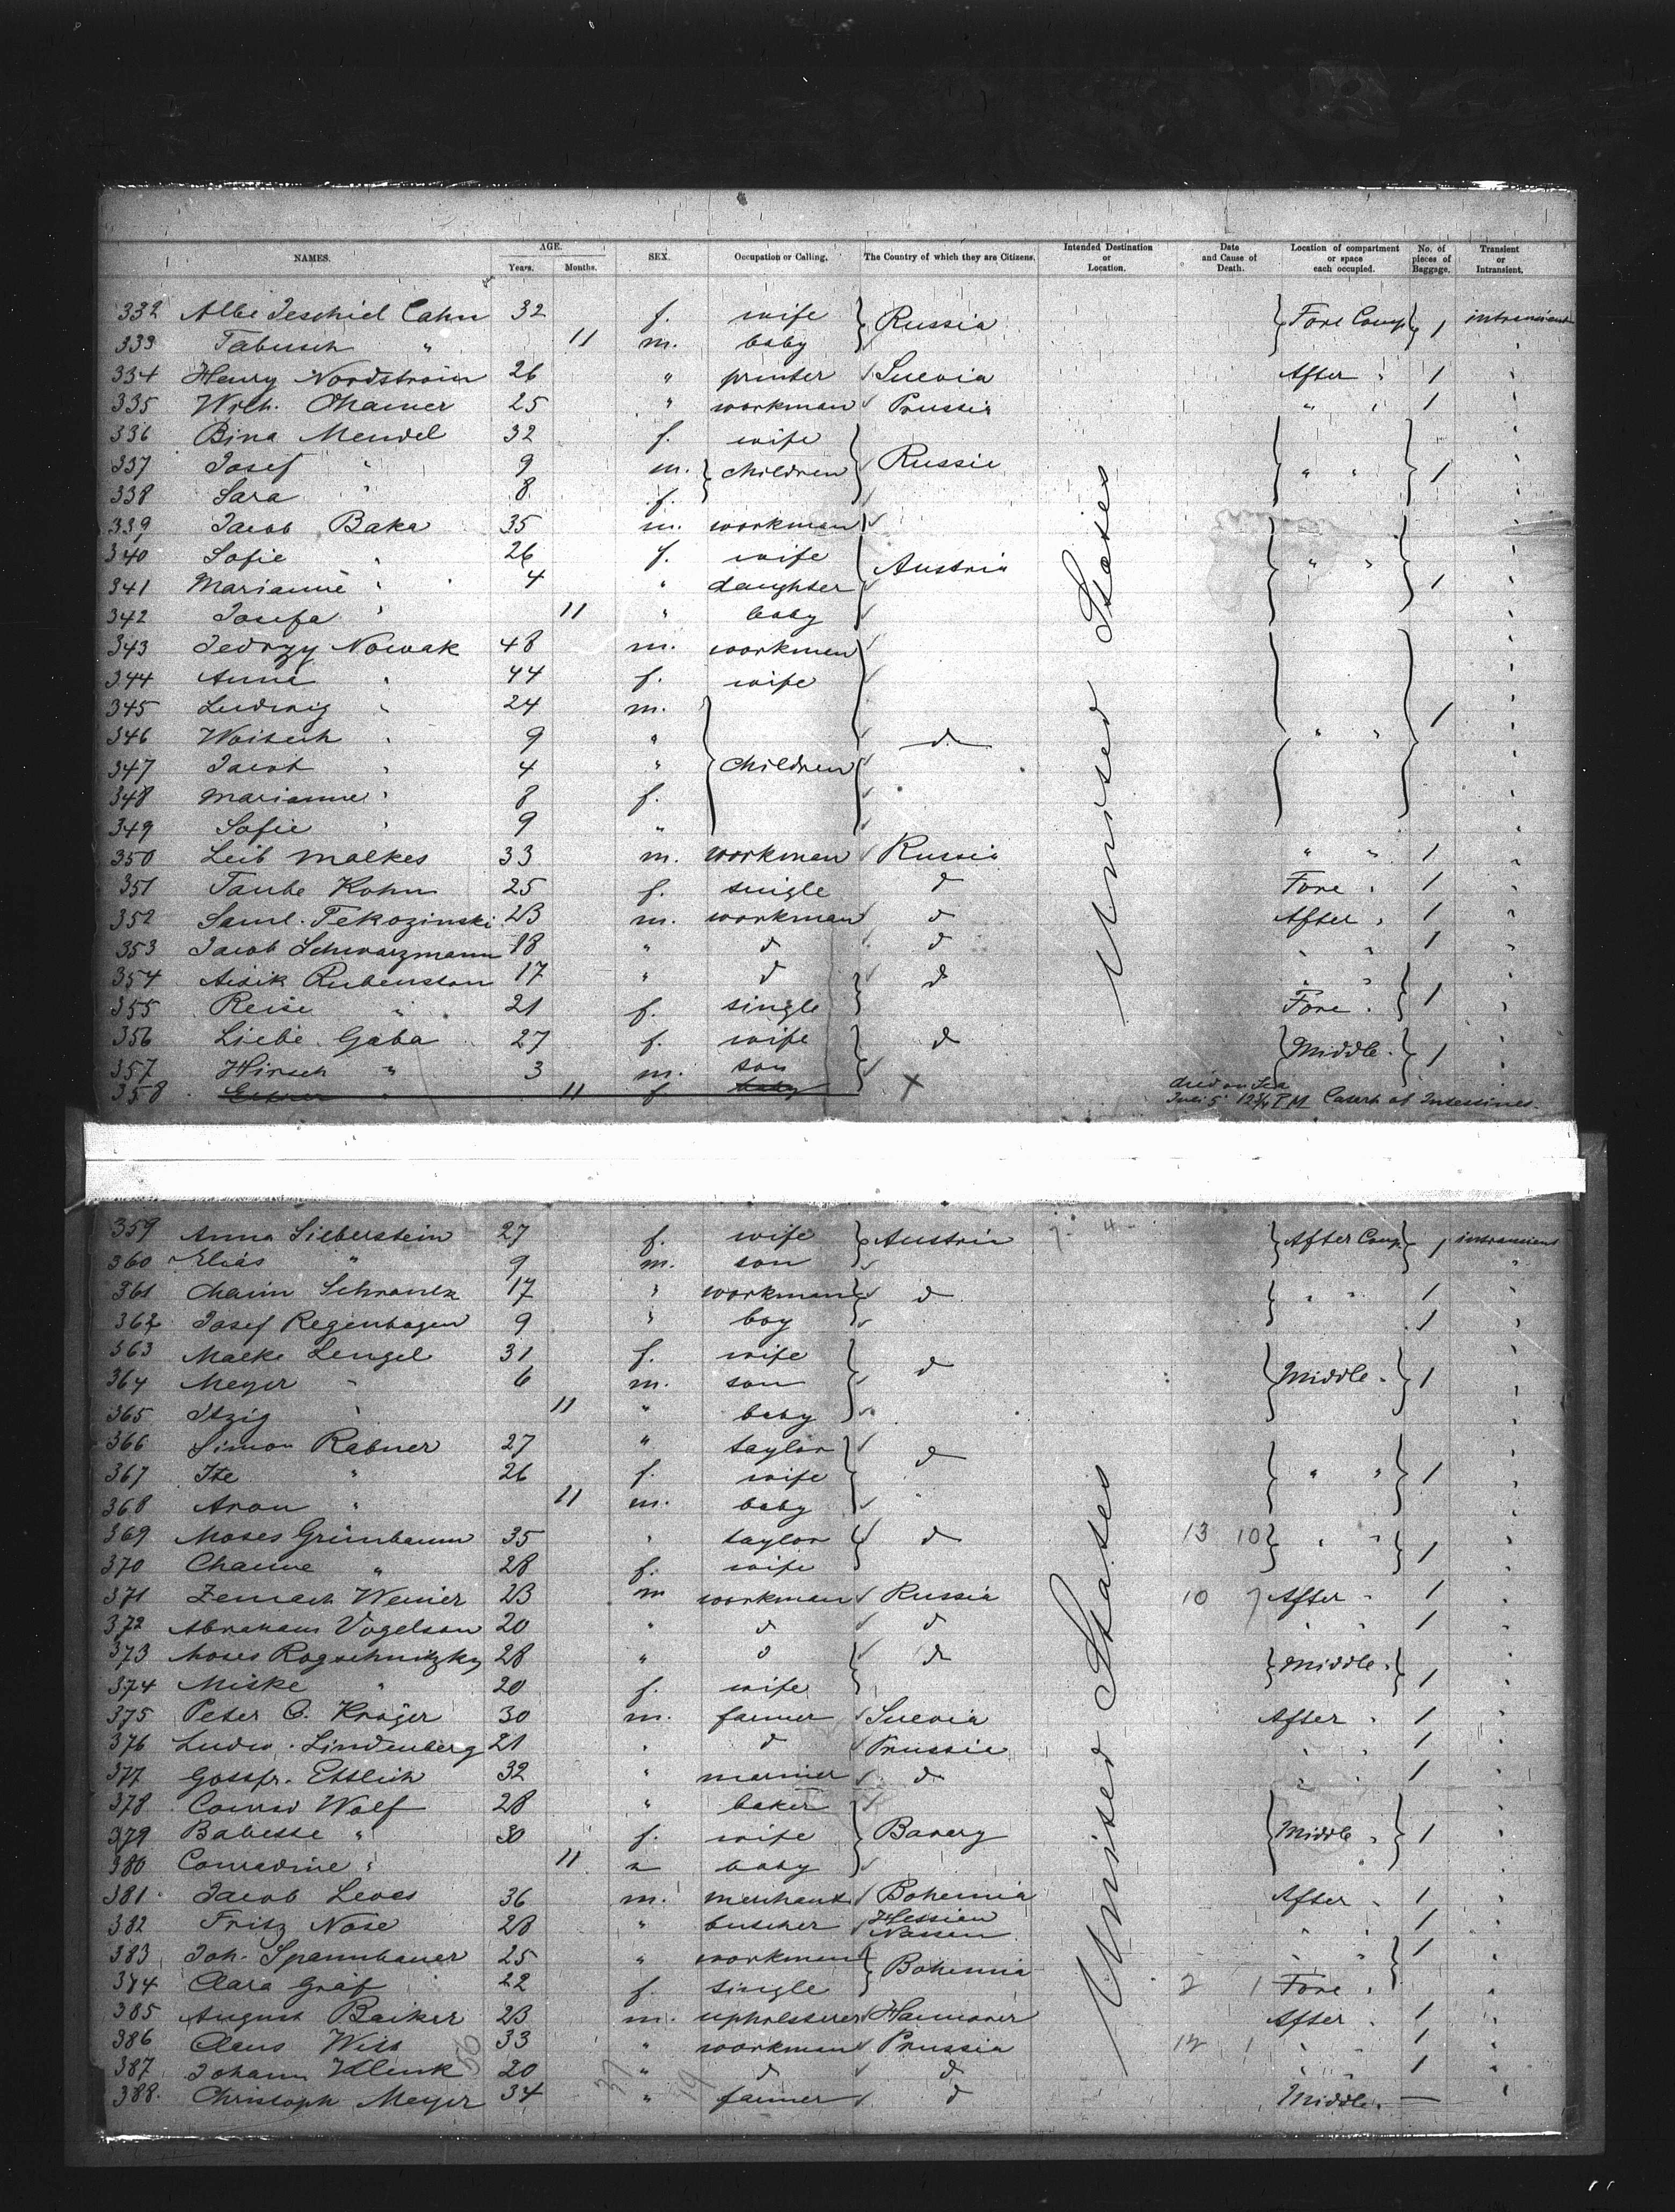 NAMES. AGE. Years. Months. SEX. Occupation or Calling. The Country of which they are Citizens. Intended Destination or Location. Date and Cause of Death. Location of compartment or space each occupied. No. of pieces of Baggage. Transient or Intransient.
332 Albe Jeschiel Cahn 32 f. wife Russia Fore Comp 1 intransient
333 Tabusch " 11 m. baby "
334 Henry Nordstroim 26 " printer Suevia After " 1 "
335 Wilh. Ohamer 25 " workman Prussia " " 1 "
336 Bina Mendel 32 f. wife "
337 Josef " 9 m. children Russia " " 1 "
338 Sara " 8 f. "
339 Jacob Baka 35 m. workman "
340 Sofie " 26 f. wife Austria " " "
341 Marianne " 4 " daughter 1 "
342 Josefa " 11 " baby "
343 Jedrzy Nowak 48 m. workman "
344 Anna " 44 f. wife "
345 Ludwig " 24 m. 1 "
346 Woitech " 9 " d " " "
347 Jacob " 4 " children "
348 Marianne " 8 f. "
349 Sofie " 9 " "
350 Leib Malkes 33 m. workman Russia " " 1 "
351 Taube Kohn 25 f. single d Fore " 1 "
352 Saml. Tekozinski 23 m. workman d After " 1 "
353 Jacob Schwarzmann 18 " d d " " 1 "
354 Aisik Rubenston 17 " d d " " "
355 Reise " 21 f. single Fore " 1 "
356 Liebe Gaba 27 f. wife d Middle " 1 "
357 Hirsch " 3 m. son "
358 " 11 f baby X died on Sea Juli 5 12 3/4 P.M. Catarrh of Intestines.
United States
359 Anna Lieberstein 27 f. wife Austria After Comp 1 intransient
360 Elias " 9 m. son "
361 Chaim Schrank 17 " workman d " " 1 "
362 Josef Regenbogen 9 " boy 1 "
363 Malke Lengel 31 f. wife d "
364 Meyer " 6 m. son Middle " 1 "
365 Itzig " 11 " baby "
366 Simon Rabner 27 " taylor d "
367 Ite " 26 f. wife " " 1 "
368 Aron " 11 m. baby "
369 Moses Grünbaum 35 " taylor d 13 10 " " "
370 Channe " 28 f. wife 1 "
371 Zemach Weiner 23 m workman Russia 10 7 After " 1 "
372 Abraham Vogelson 20 " d d " " 1 "
373 Moses Rogschnitzky 28 " d d Middle " "
374 Miske " 20 f. wife 1 "
375 Peter C. Kröger 30 m. farmer Suevia After " 1 "
376 Ludw. Lindenberg 21 " d Prussia " " 1 "
377 Gottfr. Ettlich 32 " marnier d " " 1 "
378 Conrad Wolf 28 " baker "
379 Babette " 30 f. wife Bavery Middle " 1 "
380 Conradine " 11 " baby "
381 Jacob Lewes 36 m. merchant Bohemia After " 1 "
382 Fritz Nose 28 " butcher Hessien Nassau " " 1 "
383 Joh. Spannbauer 25 " workman Bohemia " " 1 "
384 Clara Gräf 22 f. single 2 1 Fore " "
385 August Barker 23 m. upholsterer Hannover After " 1 "
386 Claus Witt 33 " workman Prussia 12 1 " " 1 "
387 Johann Klenk 20 " d d " " 1 "
388. Christoph Meyer 34 " farmer d Middle " — "
United States